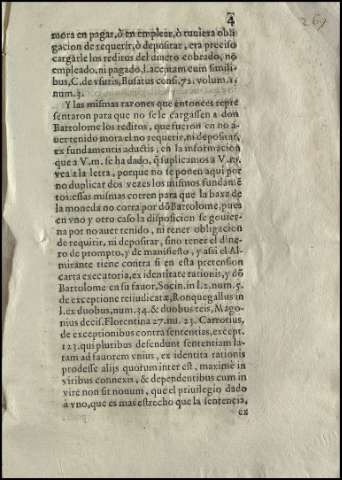 4
269
mora en pagar, ò en emplear, ò tuviera obli
gacion de requerir, ò depositar, era preciso
cargàrle los reditos del dinero cobrado, no
empleado, ni pagado l. acceptam cum simili-
bus, C. de vsuris, Busatus cons. 72. volum. 1.
num. 3.
Y las mismas razones que entonces repre
sentaron para que no se le cargassen a don
Bartolome los reditos, que fueron en no a-
uer tenido mora el no requerir, ni depositar,
ex fundamentis adustis, en la informacion
que a V.m. se ha dado, q̃ suplicamos a V.m.
vea a la letra, porque no se ponen aqui por
no duplicar dos vezes los mismos fundamē
tos: essas mismas corren para que la baxa de
la moneda no corra por dõ Bartolome, pues
en vno y otro caso la disposicion se gouier-
na por no auer tenido, ni tener obligacion
de requirir, ni depositar, sino tener el dine-
ro de prompto, y de manifiesto, y assi el Al-
mirante tiene contra si en esta pretension
carta executoria, ex identitate rationis, y dõ
Bartolome en su fauor, Socin. in l. 2. num. 5.
de exceptione rei iudicatæ, Ronquegallus in
l. ex duobus, num. 34. & duobus reis, Mago-
nius decis. Florentina 27. nu. 23. Carrotius,
de exceptionibus contra sententias, except.
123. qui pluribus defendunt sententiam la-
tam ad fauorem vnius, ex identita rationis
prodesse alijs quorum interest, maximè in
viribus connexis, & dependentibus cum in
vire non sit nouum, que el priuilegio dado
à vno, que es mas estrecho que la sentencia,
ex